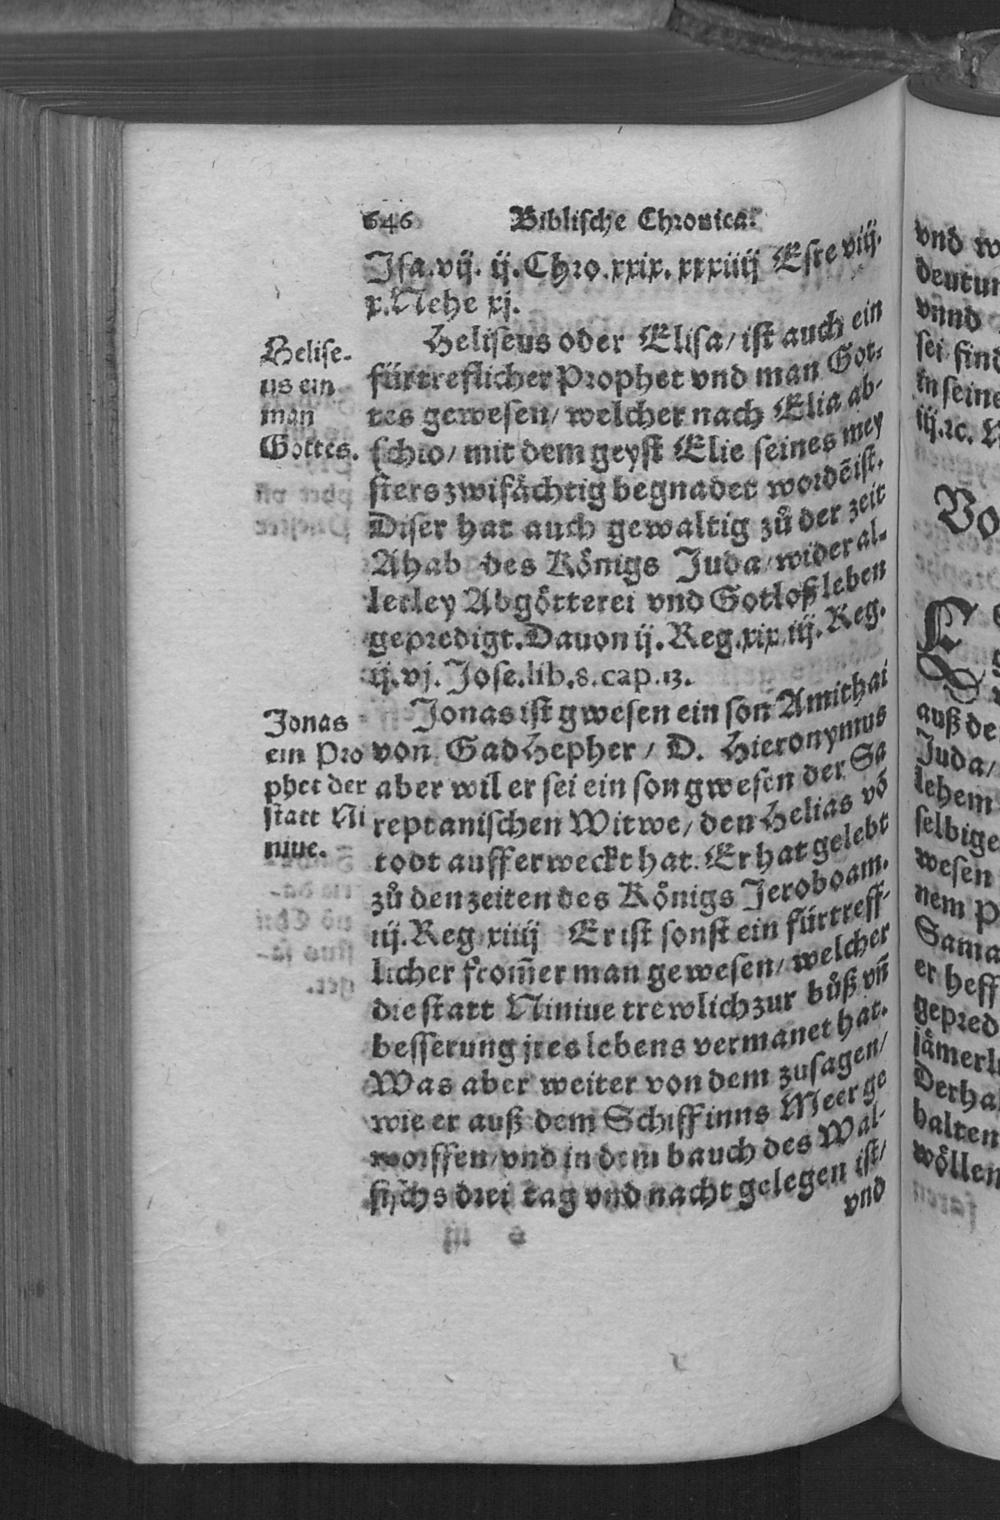 646 Biblische Chronica.
Isa. vij. ij. Chro. xxix. xxxiiij Esre viij.
x. Nehe xj.
Helise-
us ein
man
Gottes.
Heliseus oder Elisa / ist auch ein
fürtreflicher Prophet vnd man Got-
tes gewesen / welcher nach Elia ab-
schid / mit dem geyst Elie seines mey
sters zwifächtig begnadet wordẽ ist.
Diser hat auch gewaltig zů der zeit
Ahab des Königs Juda / wider al-
lerley Abgötterei vnd Gotloß leben
gepredigt. Dauon ij. Reg. xix. iij. Reg.
ij. vj. Jose. lib. 8. cap. 13.
Jonas
ein Pro
phet der
statt Ni
niue.
Jonas ist gwesen ein son Amithai
von Gad Hepher / D. Hieronymus
aber wil er sei ein son gwesen der Sa
reptanischen Witwe / den Helias võ
todt aufferweckt hat. Er hat gelebt
zů den zeiten des Königs Jeroboam.
iij. Reg xiiij Er ist sonst ein fürtreff-
licher from̃er man gewesen / welcher
die statt Niniue trewlich zur bůß vñ
besserung jres lebens vermanet hat.
Was aber weiter von dem zusagen /
wie er auß dem Schiff inns Meer ge
worffen / vnd in dem bauch des Wal-
fischs drei tag vnd nacht gelegen ist /
vnd
vnd w
deutun
vnnd
sei find
in seine
iij. ꝛc. N
Vo
auß de
Juda /
lehem
selbige
wesen
nem p
Sama
er heff
gepred
jämerl
Derhal
halten
wöllen